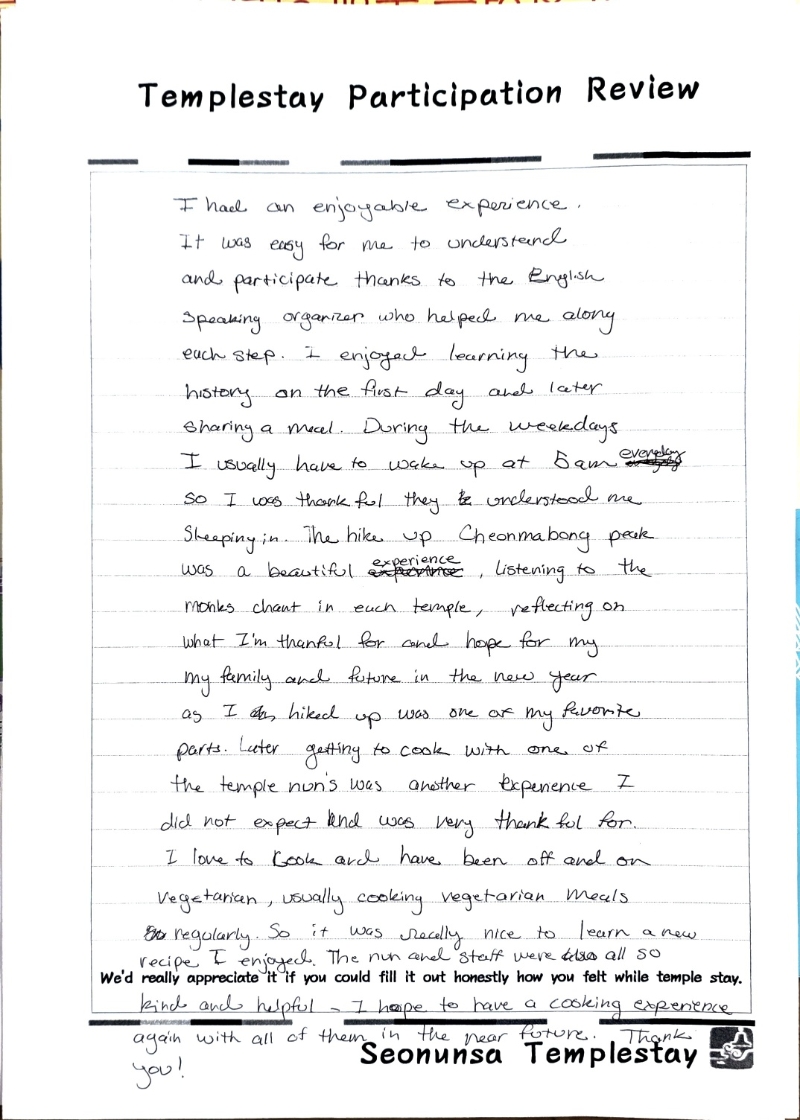 Templestay Participation Review
I had an enjoyable experience.
It was easy for me to understand
and participate thanks to the English
speaking organizer who helped me along
each step. I enjoyed learning the
history on the first day and later
sharing a meal. During the weekdays
I usually have to wake up at 5am everyday
so I was thankful they understood me
sleeping in. The hike up Cheonmabong peak
was a beautiful experience, listening to the
monks chant in each temple, reflecting on
what I'm thankful for and hope for my
my family and future in the new year
as I hiked up was one of my favorite
parts. Later getting to cook with one of
the temple nun's was another experience I
did not expect and was very thankful for.
I love to cook and have been off and on
vegetarian, usually cooking vegetarian meals
regularly. So it was really nice to learn a new
recipe I enjoyed. The nun and staff were all so
We'd really appreciate it if you could fill it out honestly how you felt while temple stay.
kind and helpful - I hope to have a cooking experience
again with all of them in the near future. Thank
Seonunsa Templestay
you!